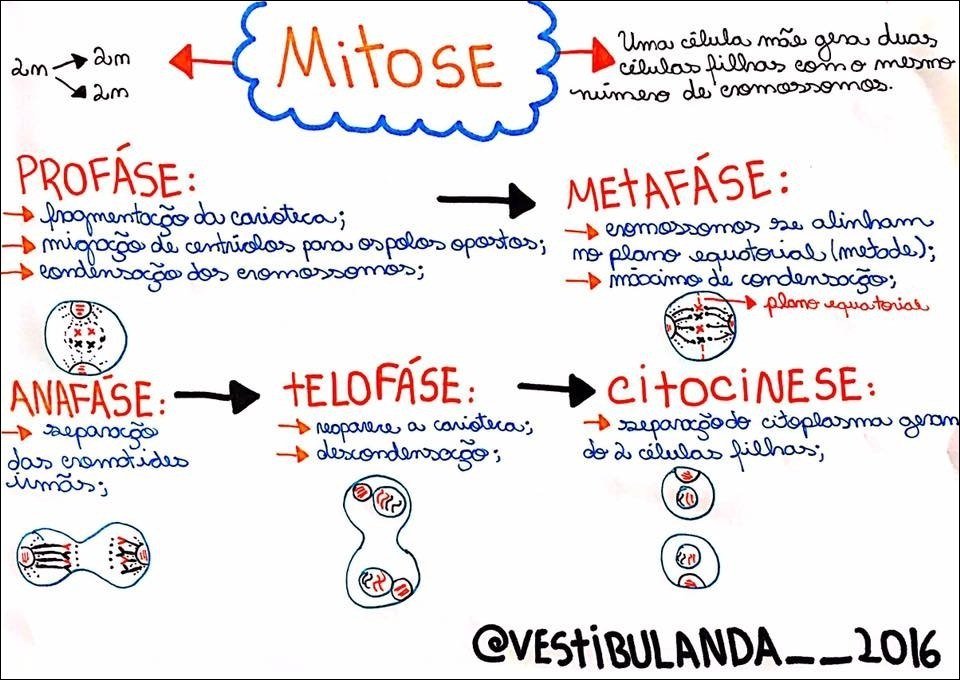 Mitose
2m → 2m
→ 2m
Uma célula mãe gera duas
células filhas com o mesmo
número de cromossomos.
PROFÁSE:
→ fragmentação da carioteca;
→ migração de centríolos para os polos opostos;
→ condensação dos cromossomos;
METAFÁSE:
→ cromossomos se alinham
no plano equatorial (metade);
→ máximo de condensação;
→ plano equatorial
ANAFÁSE:
→ separação
das cromatides
irmãs;
TELOFÁSE:
→ reaparece a carioteca;
→ descondensação;
CITOCINESE:
→ separação do citoplasma geran
do 2 células filhas;
@VESTIBULANDA__2016